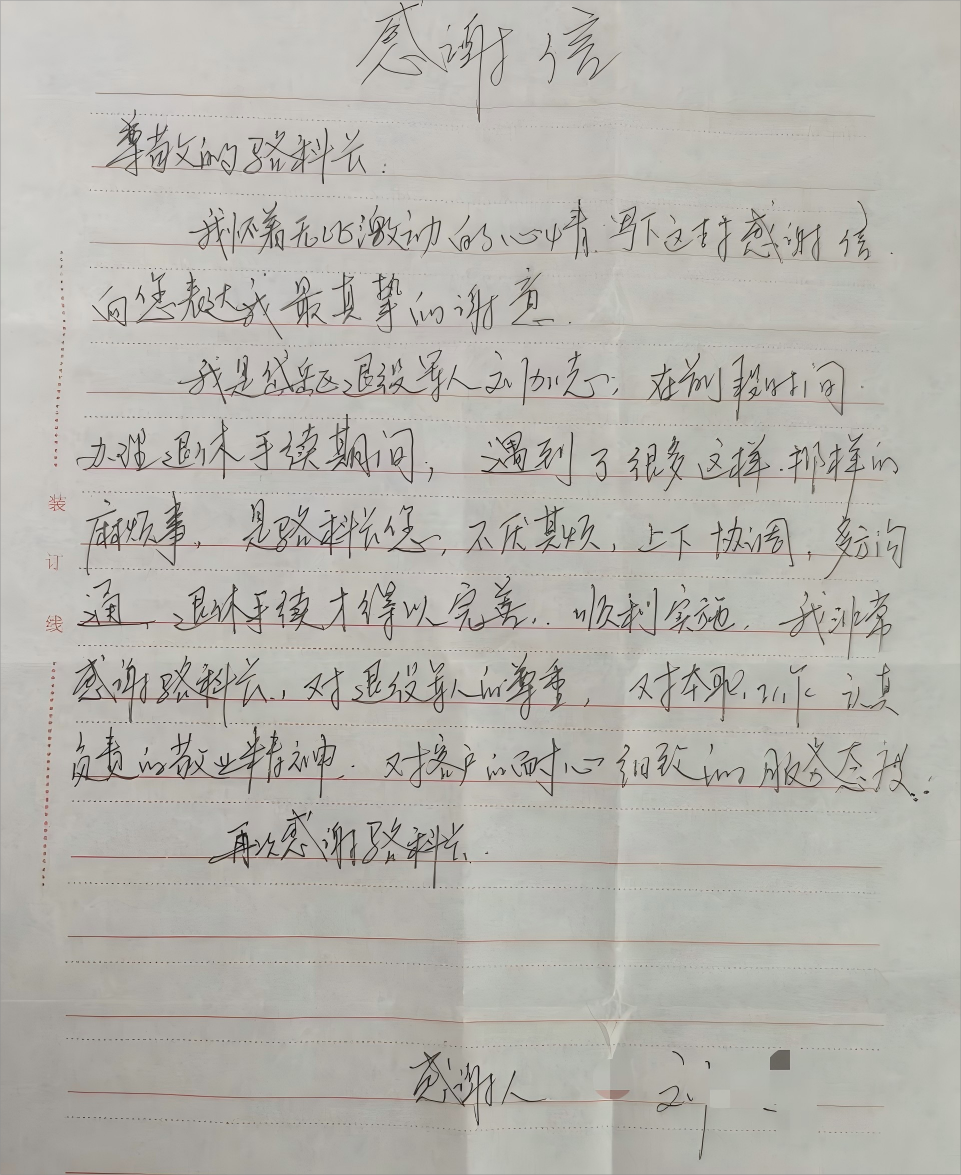 感谢信
尊敬的骆科长：
我怀着无比激动的心情.写下这封感谢信.
向您表达我最真挚的谢意.
我是岱岳区退役军人刘加志，在前段时间.
办理退休手续期间，遇到了很多这样.那样的
麻烦事，是骆科长您，不厌其烦，上下协调，多方沟
通，退休手续才得以完善..顺利实施.我非常
感谢骆科长，对退役军人的尊重，对本职工作认真
负责的敬业精神.对客户的耐心细致的服务态度..
再次感谢骆科长.
感谢人 刘
装
订
线